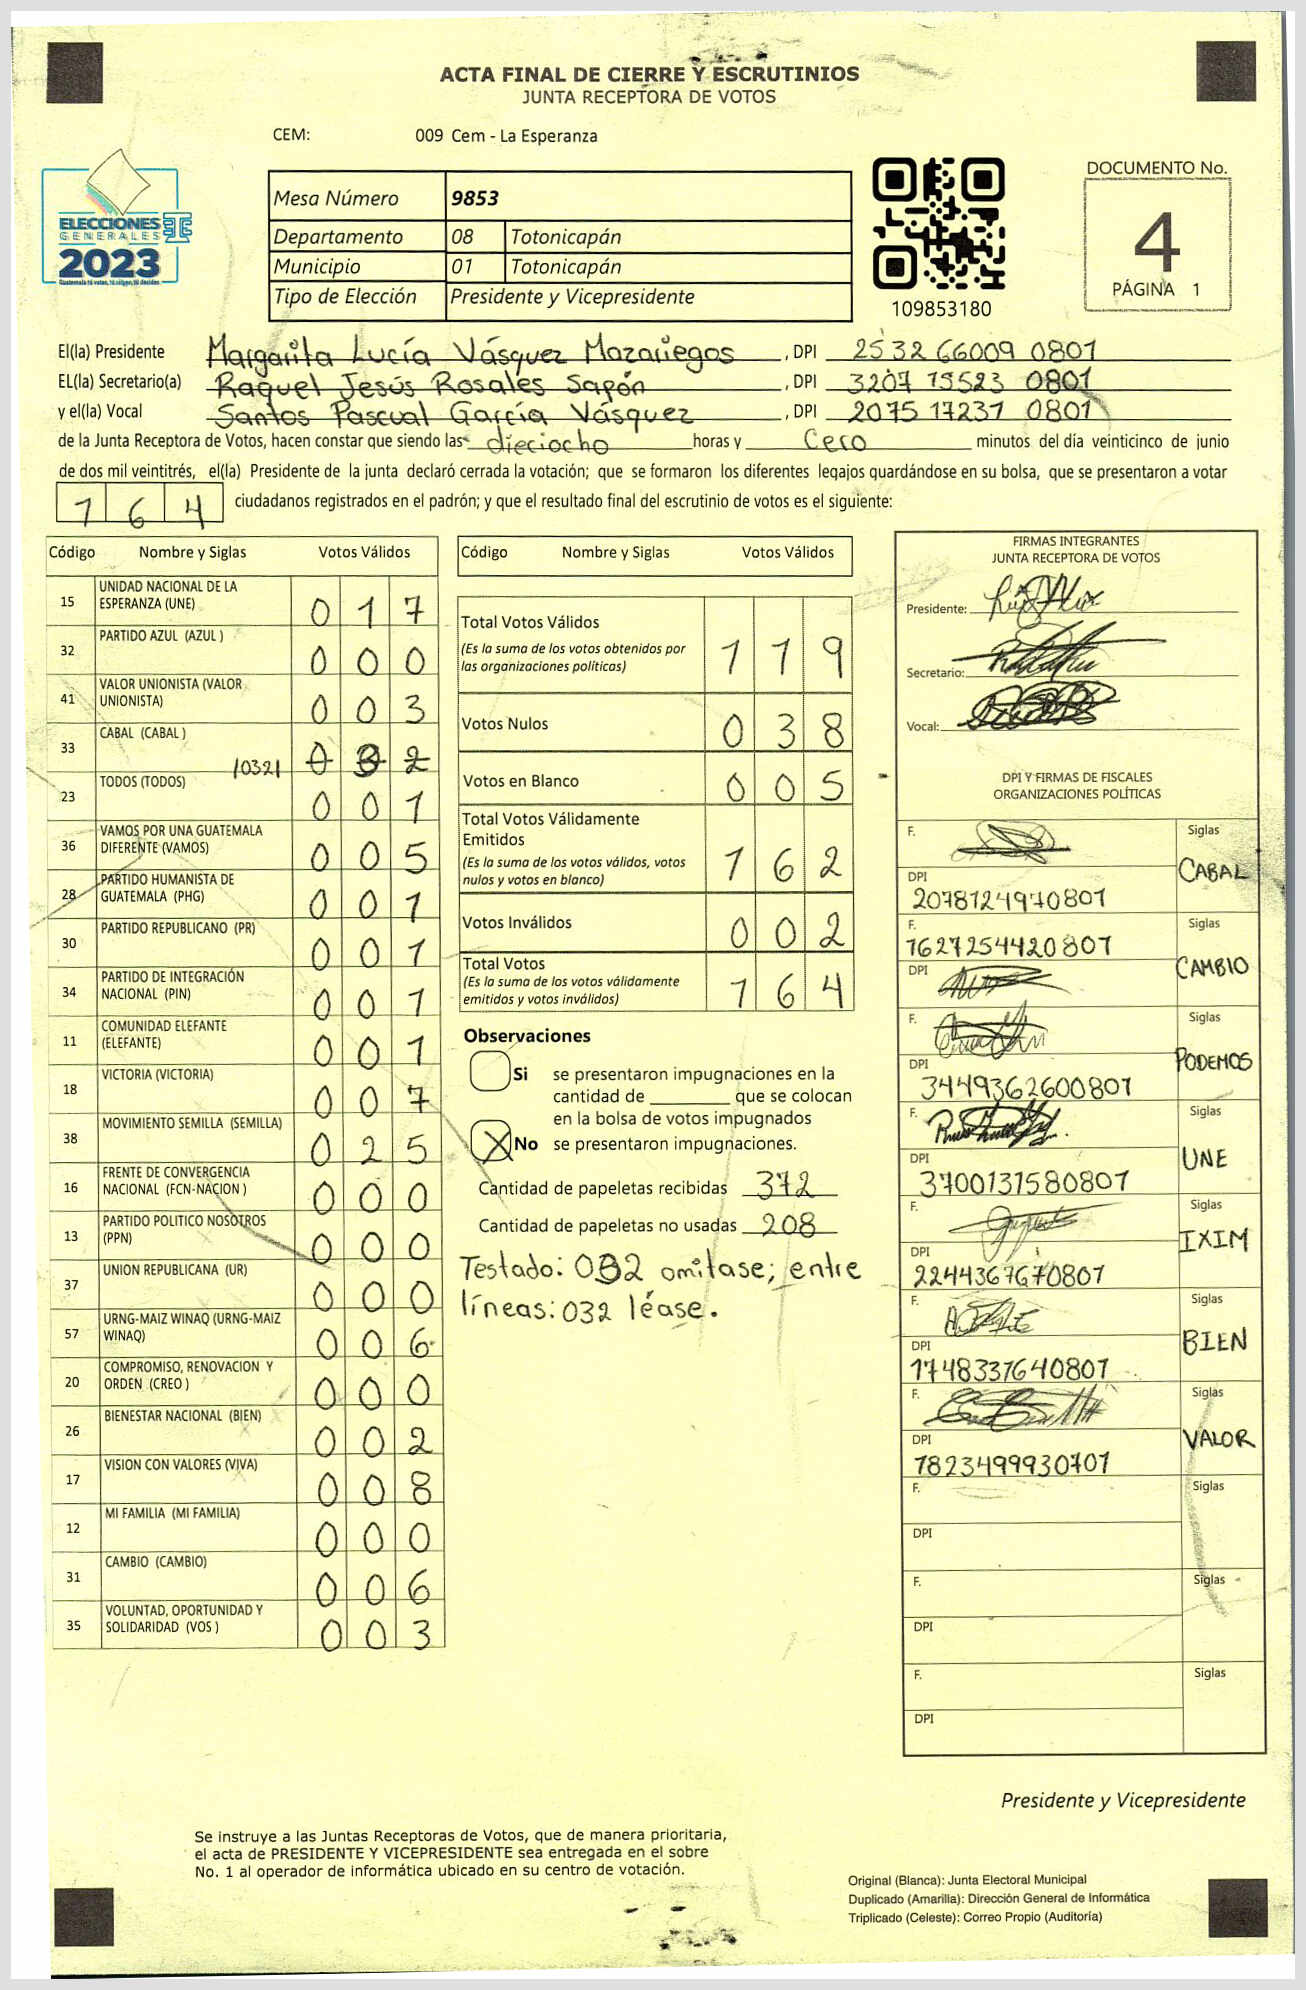 ACTA FINAL DE CIERRE Y ESCRUTINIOS
JUNTA RECEPTORA DE VOTOS
CEM: 009 Cem - La Esperanza
ELECCIONES
GENERALES
2023
Mesa Número 9853
Departamento 08 Totonicapán
Municipio 01 Totonicapán
Tipo de Elección Presidente y Vicepresidente
109853180
DOCUMENTO No.
4
PÁGINA 1
El(la) Presidente Margarita Lucía Vásquez Mazariegos , DPI 2532 66009 0801
EL(la) Secretario(a) Raquel Jesús Rosales Sapón , DPI 3207 15523 0801
y el(la) Vocal Santos Pascual García Vásquez , DPI 2075 17231 0801
de la Junta Receptora de Votos, hacen constar que siendo las dieciocho horas y Cero minutos del día veinticinco de junio
de dos mil veintitrés, el(la) Presidente de la junta declaró cerrada la votación; que se formaron los diferentes legajos guardándose en su bolsa, que se presentaron a votar
164 ciudadanos registrados en el padrón; y que el resultado final del escrutinio de votos es el siguiente:
Código Nombre y Siglas Votos Válidos
15 UNIDAD NACIONAL DE LA
ESPERANZA (UNE) 0 1 7
32 PARTIDO AZUL (AZUL ) 0 0 0
41 VALOR UNIONISTA (VALOR
UNIONISTA) 0 0 3
33 CABAL (CABAL ) /032/ 0 3 2
23 TODOS (TODOS) 0 0 1
36 VAMOS POR UNA GUATEMALA
DIFERENTE (VAMOS) 0 0 5
28 PARTIDO HUMANISTA DE
GUATEMALA (PHG) 0 0 1
30 PARTIDO REPUBLICANO (PR) 0 0 1
34 PARTIDO DE INTEGRACIÓN
NACIONAL (PIN) 0 0 1
11 COMUNIDAD ELEFANTE
(ELEFANTE) 0 0 1
18 VICTORIA (VICTORIA) 0 0 7
38 MOVIMIENTO SEMILLA (SEMILLA) 0 2 5
16 FRENTE DE CONVERGENCIA
NACIONAL (FCN-NACION ) 0 0 0
13 PARTIDO POLITICO NOSOTROS
(PPN) 0 0 0
37 UNION REPUBLICANA (UR) 0 0 0
57 URNG-MAIZ WINAQ (URNG-MAIZ
WINAQ) 0 0 6
20 COMPROMISO, RENOVACION Y
ORDEN (CREO ) 0 0 0
26 BIENESTAR NACIONAL (BIEN) 0 0 2
17 VISION CON VALORES (VIVA) 0 0 8
12 MI FAMILIA (MI FAMILIA) 0 0 0
31 CAMBIO (CAMBIO) 0 0 6
35 VOLUNTAD, OPORTUNIDAD Y
SOLIDARIDAD (VOS ) 0 0 3
Código Nombre y Siglas Votos Válidos
Total Votos Válidos
(Es la suma de los votos obtenidos por
las organizaciones políticas) 1 1 9
Votos Nulos 0 3 8
Votos en Blanco 0 0 5
Total Votos Válidamente
Emitidos
(Es la suma de los votos válidos, votos
nulos y votos en blanco) 1 6 2
Votos Inválidos 0 0 2
Total Votos
(Es la suma de los votos válidamente
emitidos y votos inválidos) 1 6 4
Observaciones
Si se presentaron impugnaciones en la
cantidad de ________ que se colocan
en la bolsa de votos impugnados
X No se presentaron impugnaciones.
Cantidad de papeletas recibidas 372
Cantidad de papeletas no usadas 208
Testado: 032 omitase; entre
líneas: 032 léase.
FIRMAS INTEGRANTES
JUNTA RECEPTORA DE VOTOS
Presidente:
Secretario:
Vocal:
DPI Y FIRMAS DE FISCALES
ORGANIZACIONES POLÍTICAS
F. Siglas
CABAL
DPI
2078124970801
F.
1627254420801
DPI CAMBIO
F. Siglas
PODEMOS
DPI
3449362600801
F. Siglas
UNE
DPI
3700131580801
F. Siglas
IXIM
DPI
2244367670801
F. Siglas
BIEN
DPI
1748337640801
F. Siglas
VALOR
DPI
1823499930701
F. Siglas
DPI
F. Siglas
DPI
F. Siglas
DPI
Presidente y Vicepresidente
Se instruye a las Juntas Receptoras de Votos, que de manera prioritaria,
el acta de PRESIDENTE Y VICEPRESIDENTE sea entregada en el sobre
No. 1 al operador de informática ubicado en su centro de votación.
Original (Blanca): Junta Electoral Municipal
Duplicado (Amarilla): Dirección General de Informática
Triplicado (Celeste): Correo Propio (Auditoría)